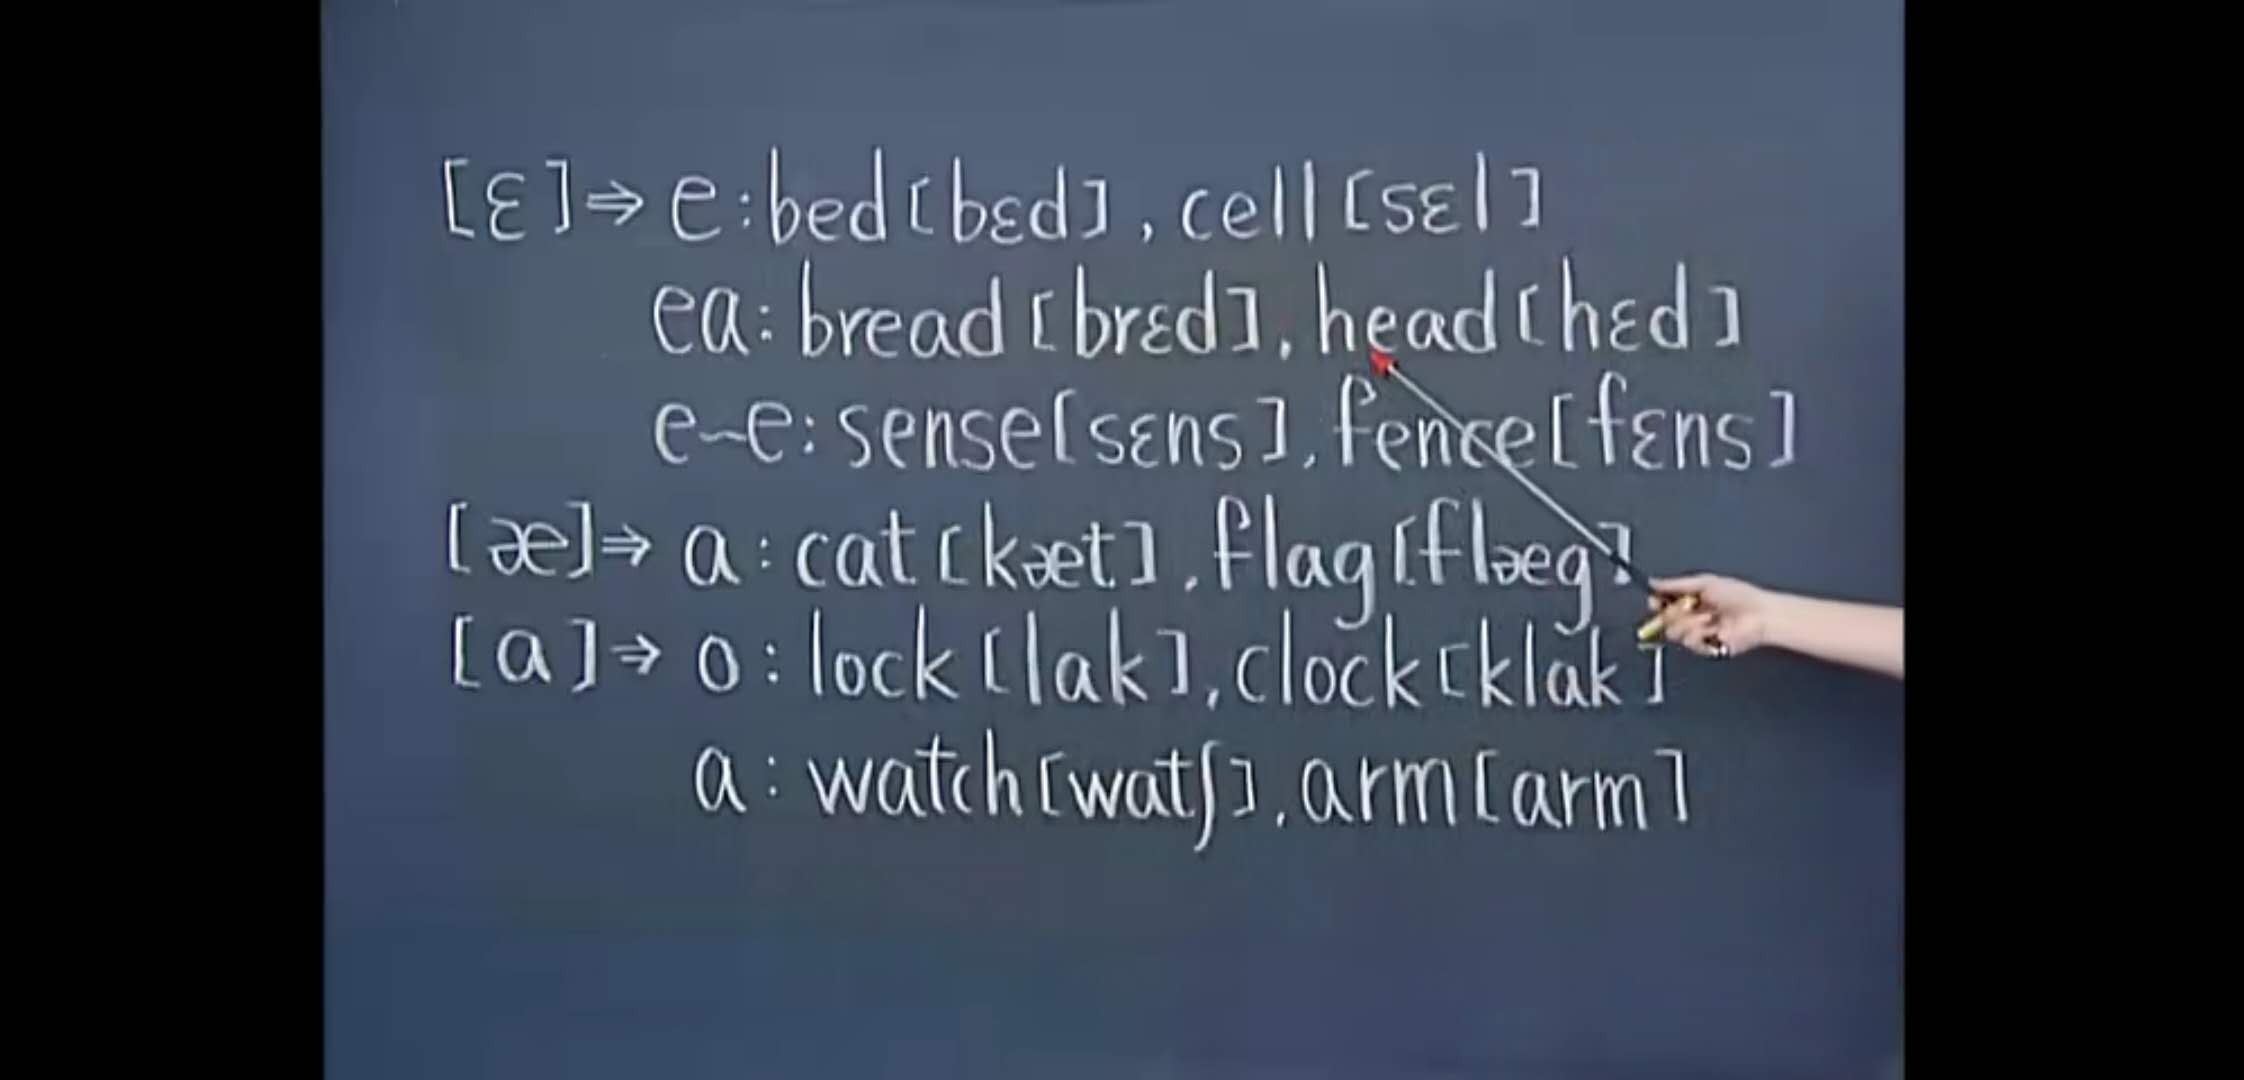 [ɛ]⇒ e:bed[bɛd], cell[sɛl]
ea: bread[brɛd], head[hɛd]
e~e: sense[sɛns], fence[fɛns]
[æ]⇒ a: cat[kæt], flag[flæg]
[a]⇒ o: lock[lak], clock[klak]
a: watch[watʃ], arm[arm]